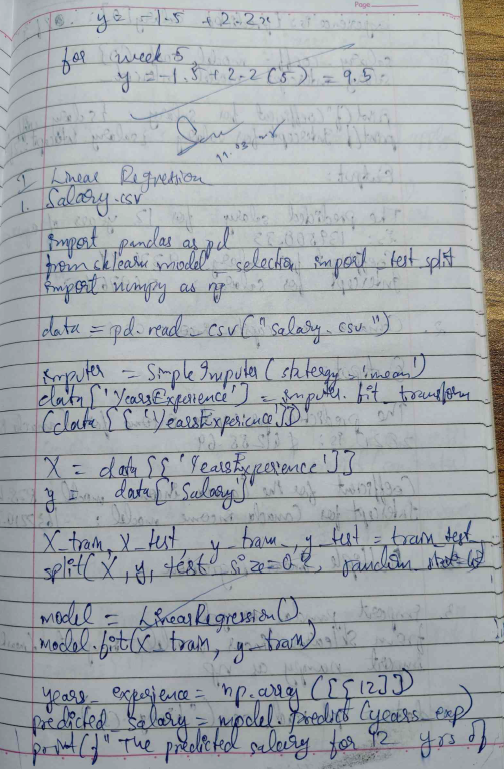 Page
y = -1.5 + 2.2x
for week 5,
y = -1.5 + 2.2 (5) = 9.5
11.03
Linear Regression
1. Salary.csv
import pandas as pd
from sklearn model_selection import test split
import numpy as np
data = pd.read_csv("salary.csv")
imputer = SimpleImputer(statergy = 'mean')
data['YearsExperience'] = imputer.fit_transform
(data[['YearsExperience']])
X = data[['YearsExperience']]
y = data['Salary']
X_train, X_test, y_train, y_test = train_test_
split(X, y, test size=0.2, random state=42)
model = LinearRegression()
model.fit(X_train, y_train)
years_experience = np.array([[12]])
predicted_salary = model.predict(years_exp)
print(f"The predicted salary for 12 yrs of